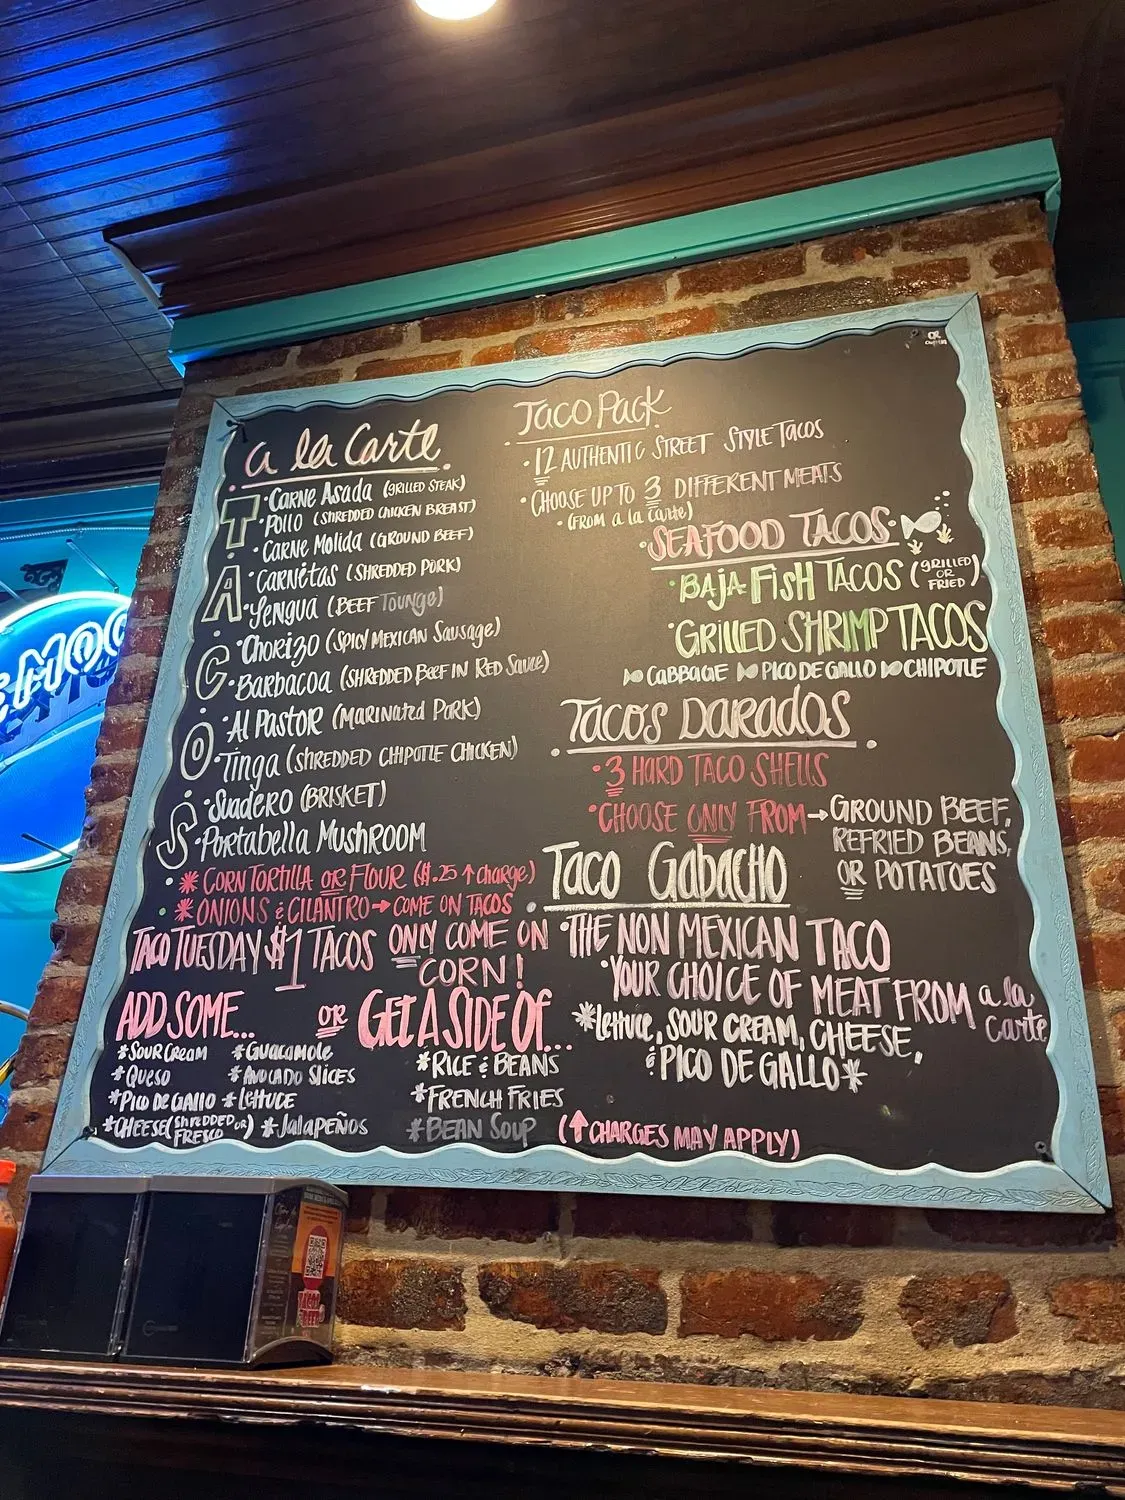 a la Carte
TACOS
• Carne Asada (Grilled Steak)
• Pollo (Shredded Chicken Breast)
• Carne Molida (Ground Beef)
• Carnitas (Shredded Pork)
• Lengua (Beef Tounge)
• Chorizo (Spicy Mexican Sausage)
• Barbacoa (Shredded Beef in Red Sauce)
• Al Pastor (Marinated Pork)
• Tinga (Shredded Chipotle Chicken)
• Suadero (Brisket)
• Portabella Mushroom
* Corn Tortilla or Flour ($.25 ↑ charge)
* Onions & Cilantro → Come on Tacos
Taco Tuesday $1 Tacos only come on
corn!
Add some...
* Sour Cream * Guacamole
* Queso * Avocado Slices
* Pico de Gallo * Lettuce
* Cheese (Shredded or Fresco) * Jalapeños
or Get a side of...
* Rice & Beans
* French Fries
* Bean Soup (↑ charges may apply)
Taco Pack
• 12 Authentic Street Style Tacos
• Choose up to 3 different meats
• (from a la carte)
Seafood Tacos
• Baja Fish Tacos (grilled or fried)
• Grilled Shrimp Tacos
Cabbage Pico de Gallo Chipotle
Tacos Darados
• 3 Hard Taco Shells
• Choose only from → Ground Beef,
Refried Beans,
or Potatoes
Taco Gabacho
• The Non Mexican Taco
• Your choice of meat from a la Carte
* Lettuce, Sour Cream, Cheese,
& Pico de Gallo *